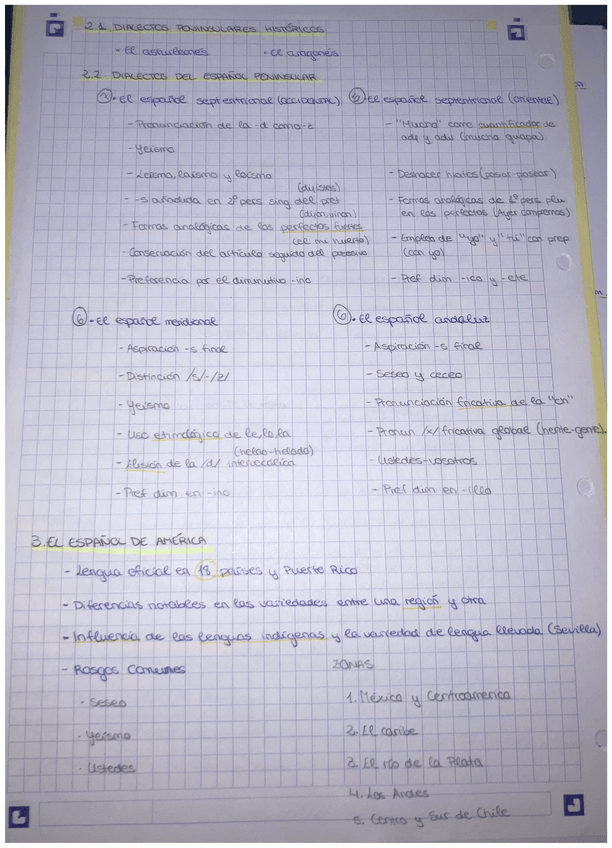 2.1. DIALECTOS PENINSULARES HISTÓRICOS
- El asturleonés
- El aragonés
2.2 DIALECTOS DEL ESPAÑOL PENINSULAR
El español septentrional (OCCIDENTAL)
- Pronunciación de la -d como -z
- Yeísmo
- Leísmo, laísmo y loísmo
- -s añadida en 2ª pers sing del pret (dijistes)
- Formas analógicas de los perfectos fuertes (dijon, vinon)
- Conservación del artículo seguido del posesivo (el mi huerto)
- Preferencia por el diminutivo -ino
El español septentrional (oriental)
- "Mucho" como cuantificador de
adj y adv (mucho guapa)
- Deshacer hiatos (pasiar-pasear)
- Formas analógicas de 1ª pers plu
en los perfectos (Ayer compremos)
- Empleo de "yo" y "tú" con prep
(con yo)
- Pref dim -ico y -ete
El español meridional
- Aspiración -s final
- Distinción /s/-/z/
- Yeísmo
- Uso etimológico de le, lo, la
- Elisión de la /d/ intervocálica (helao-helado)
- Pref dim en -ino
El español andaluz
- Aspiración -s final
- Seseo y ceceo
- Pronunciación fricativa de la "ch"
- Pronun /x/ fricativa global (hente-gente)
- Ustedes-vosotros
- Pref dim en -illo
3. EL ESPAÑOL DE AMÉRICA
- Lengua oficial en 18 países y Puerto Rico
- Diferencias notables en las variedades entre una región y otra
- Influencia de las lenguas indígenas y la variedad de lengua llevada (Sevilla)
- Rasgos Comunes
· Seseo
· Yeísmo
· Ustedes
ZONAS
1. México y Centroamerica
2. El caribe
3. El río de la Plata
4. Los Andes
5. Centro y Sur de Chile